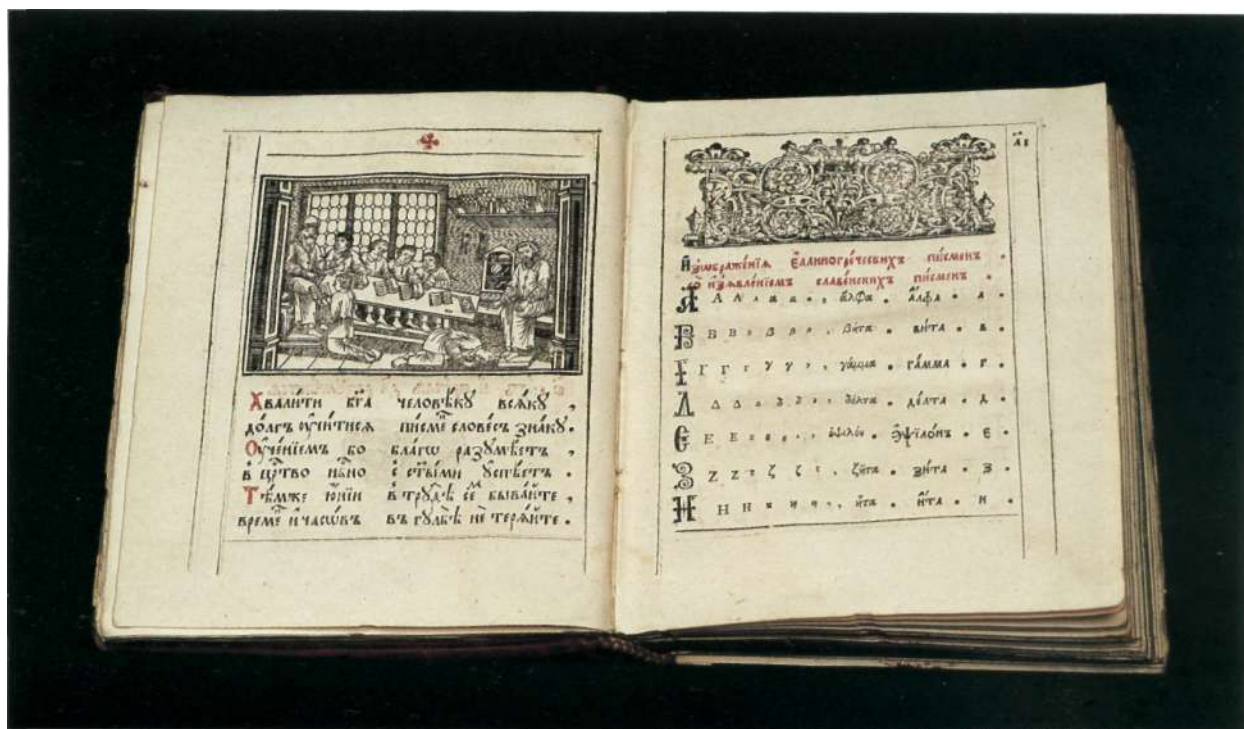 Хвали́ти бг҃а человѣ́ку вся́ку ,
до́лгъ ᲂу҆чи́тися писме́слове́съ зна́ку .
Оу҆че́нїемъ бо бла́гѡ разꙋмѣ́етъ ,
в црⷭ҇тво нб҃но с ст҃ы́ми ᲂу҆спѣ́етъ .
Тѣ́мже ю҆́нїи в трꙋдѣ̀ се́мъ быва́йте ,
време́ и҆ часѡ́въ въ гꙋльбѣ̀ не теря́йте .
И҆з̾ѡбраже́нїѧ є҆ллиногре́ческихъ пи́сменъ .
со и҆з̾ѧвле́нїемъ славе́нскихъ пи́сменъ .
А Α Α α α , ἄλφα . а҆́лфа . а .
В Β Β β β , βῆτα . ви́та . в .
Г Γ Γ γ γ , γάμμα . га́мма . г .
Δ Δ Δ δ δ , δέλτα . де́лта . д .
Є Ε Ε ε ε , ἐψιλόν . є҆ѱїло́нъ . є .
З Ζ Ζ ζ ζ , ζῆτα . зи́та . з .
Н Η Η η η , ἦτα . и҆́та . и .